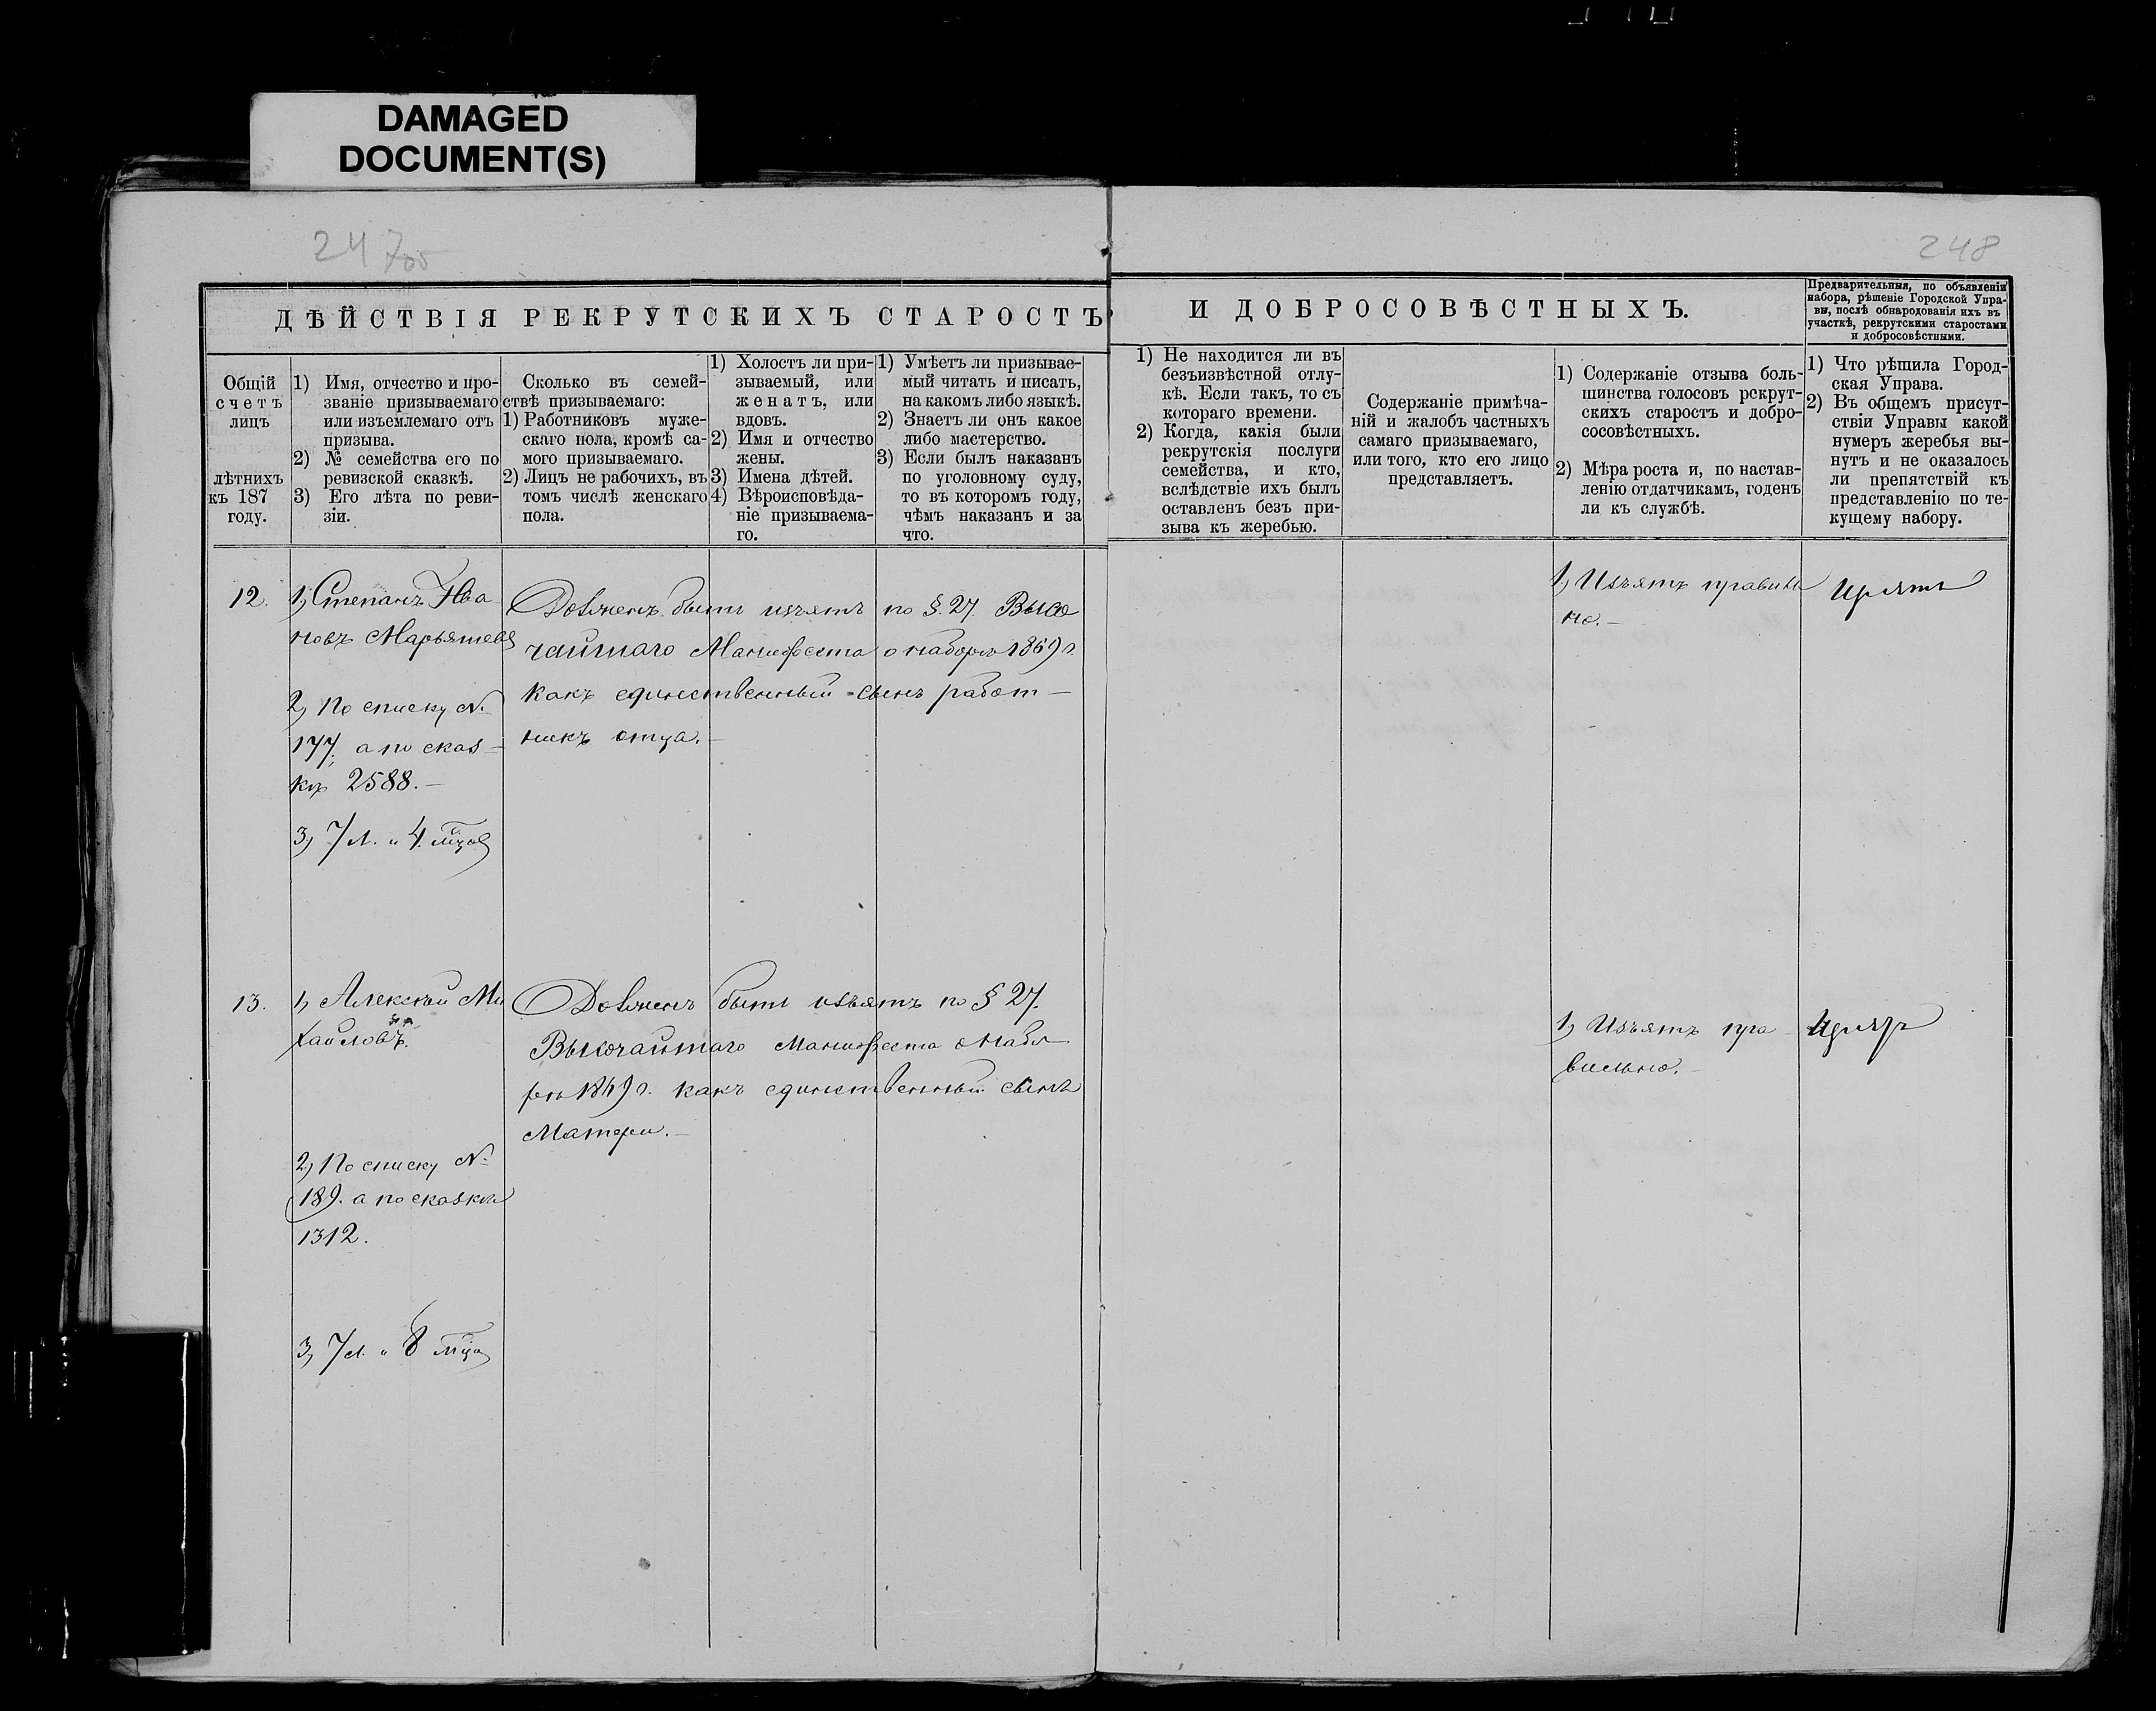 DAMAGED
DOCUMENT(S)
247об
248
ДѢЙСТВІЯ РЕКРУТСКИХЪ СТАРОСТЪ
И ДОБРОСОВѢСТНЫХЪ.
Предварительныя, по объявленіи
набора, рѣшеніе Городской Упра-
вы, послѣ обнародованія ихъ въ
участкѣ, рекрутскими старостами
и добросовѣстными.
Общій
счетъ
лицъ
лѣтнихъ
къ 187
году.
1) Имя, отчество и про-
званіе призываемаго
или изъемлемаго отъ
призыва.
2) № семейства его по
ревизской сказкѣ.
3) Его лѣта по реви-
зіи.
Сколько въ семей-
ствѣ призываемаго:
1) Работниковъ муже-
скаго пола, кромѣ са-
мого призываемаго.
2) Лицъ не рабочихъ, въ
томъ числѣ женскаго
пола.
1) Холостъ ли при-
зываемый, или
женатъ, или
вдовъ.
2) Имя и отчество
жены.
3) Имена дѣтей.
4) Вѣроисповѣда-
ніе призываема-
го.
1) Умѣетъ ли призывае-
мый читать и писать,
на какомъ либо языкѣ.
2) Знаетъ ли онъ какое
либо мастерство.
3) Если былъ наказанъ
по уголовному суду,
то въ которомъ году,
чѣмъ наказанъ и за
что.
1) Не находится ли въ
безъизвѣстной отлу-
кѣ. Если такъ, то съ
котораго времени.
2) Когда, какія были
рекрутскія послуги
семейства, и кто,
вслѣдствіе ихъ былъ
оставленъ безъ при-
зыва къ жеребью.
Содержаніе примѣча-
ній и жалобъ частныхъ
самаго призываемаго,
или того, кто его лицо
представляетъ.
1) Содержаніе отзыва боль-
шинства голосовъ рекрут-
скихъ старостъ и добро-
сосовѣстныхъ.
2) Мѣра роста и, по настав-
ленію отдатчикамъ, годенъ
ли къ службѣ.
1) Что рѣшила Город-
ская Управа.
2) Въ общемъ присут-
ствіи Управы какой
нумеръ жеребья вы-
нутъ и не оказалось
ли препятствій къ
представленію по те-
кущему набору.
12.
1) Степанъ Ива
новъ
2) По списку №
177, а по сказ-
кѣ 2588.-
3) 7 л. и 4. мцов
Долженъ быть изъятъ по §. 27. Высо
чайшаго Манифеста о наборѣ 1869 г.
какъ единственный сынъ работ-
никъ отца.-
1) Изъятъ правиль
но.-
Изъять
13.
1) Алексѣй Ми
хайловъ.
2) По списку №
189. а по сказкѣ
1312.
3) 7 л. и 8 мца
Долженъ быть изъятъ по § 27.
Высочайшаго Манифеста о набо
рѣ 1869 г. какъ единственный сынъ
Матери.-
1) Изъятъ пра-
вильно.-